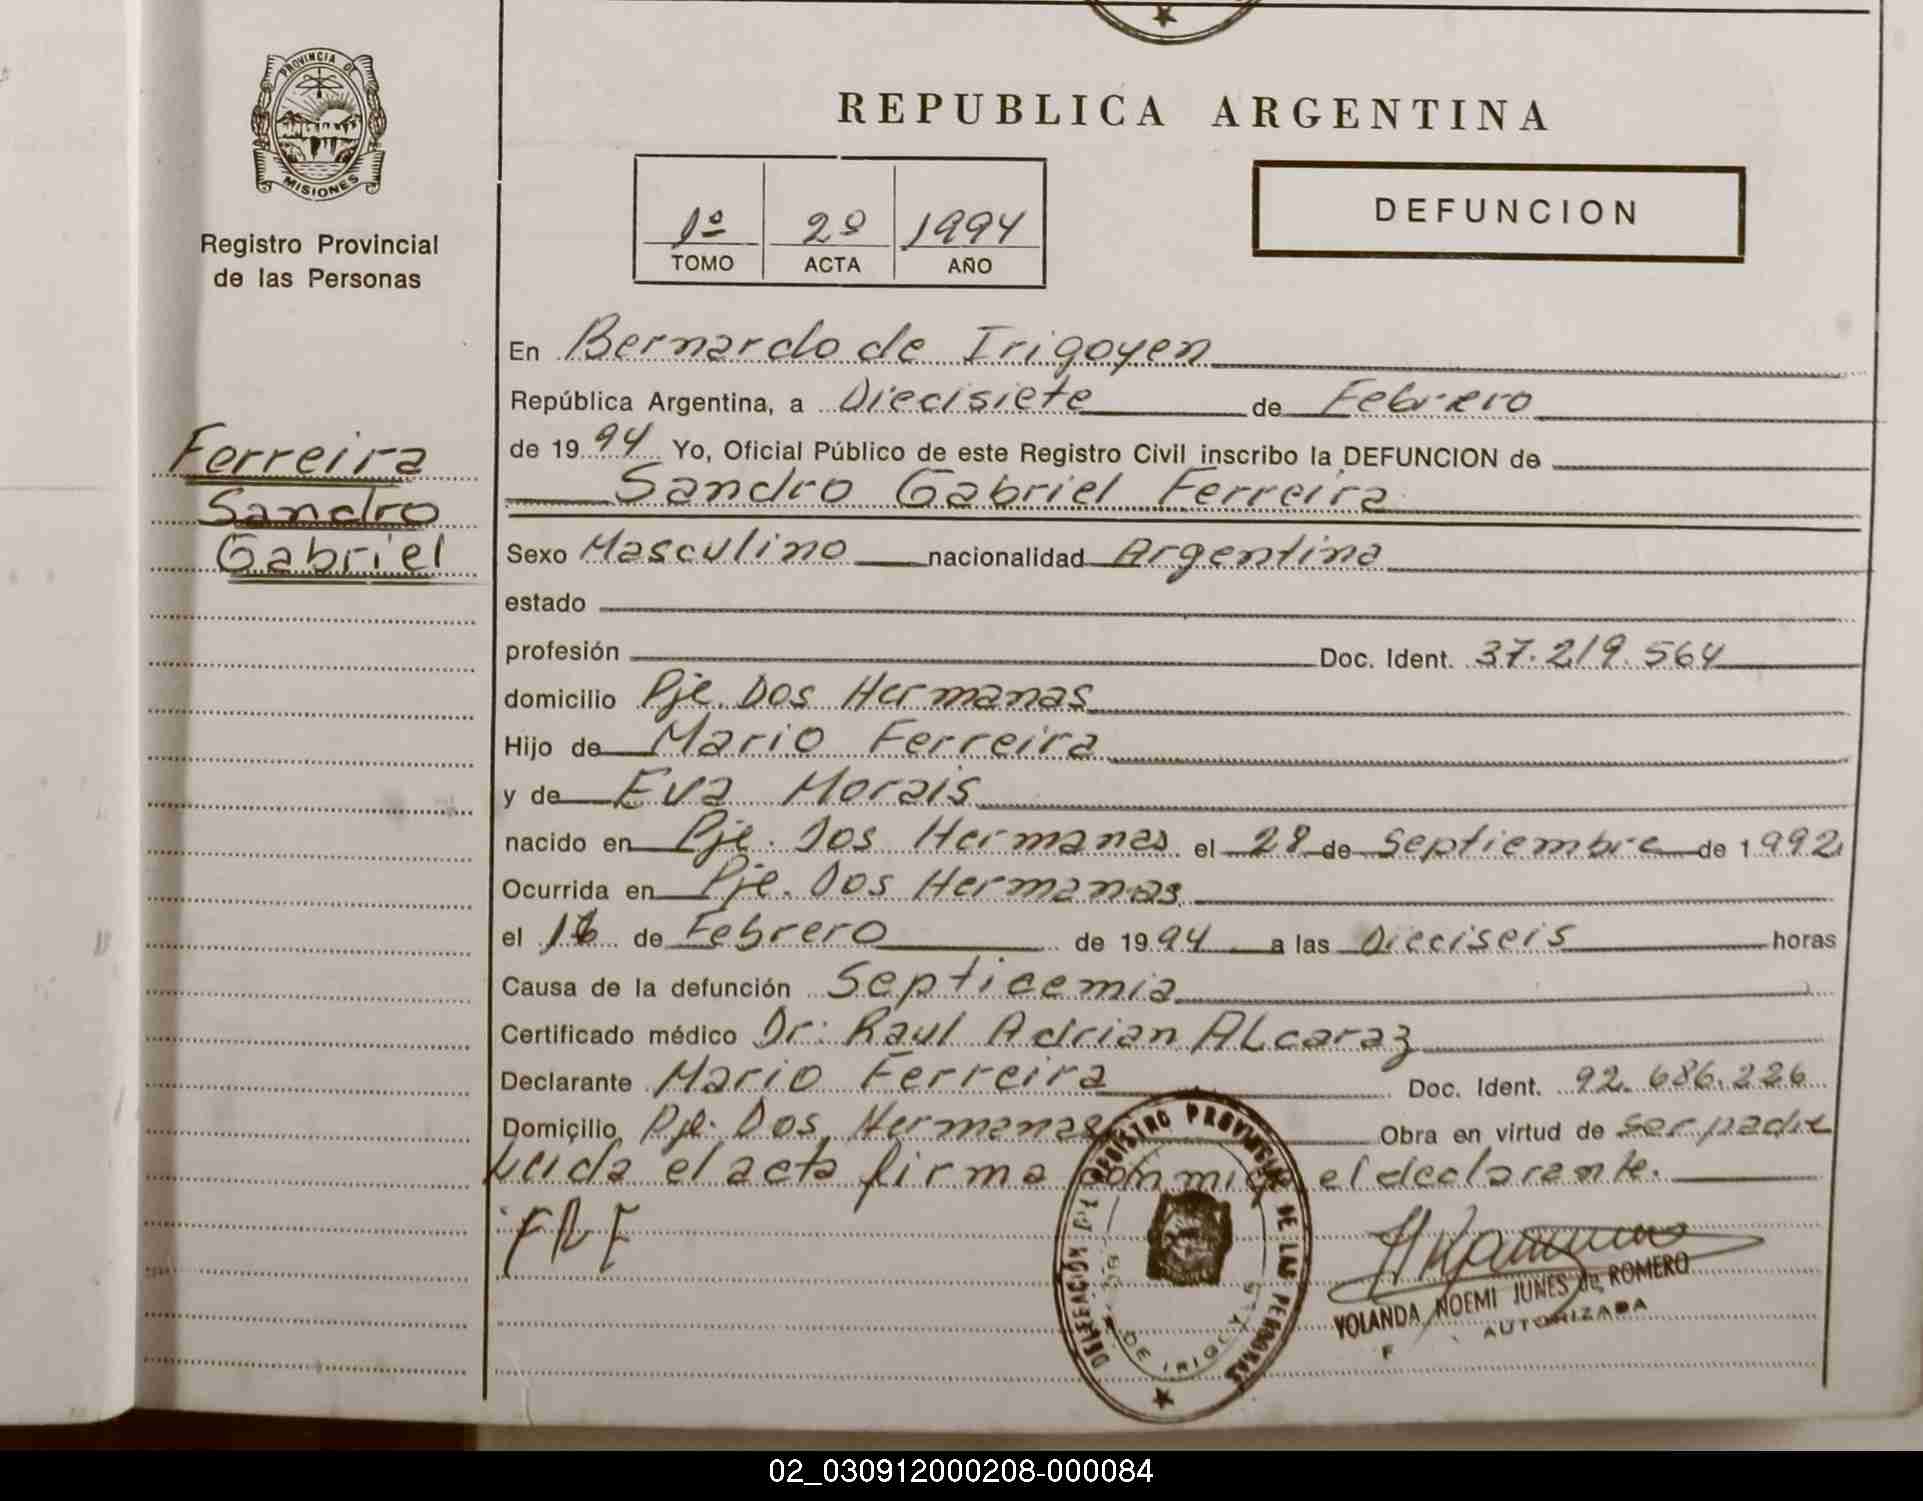 PROVINCIA DE
MISIONES
Registro Provincial
de las Personas
Ferreira
Sandro
Gabriel
REPUBLICA ARGENTINA
1º 2º 1994
TOMO ACTA AÑO
DEFUNCION
En Bernardo de Irigoyen
República Argentina, a Diecisiete de Febrero
de 1994 Yo, Oficial Público de este Registro Civil inscribo la DEFUNCION de
Sandro Gabriel Ferreira
Sexo Masculino nacionalidad Argentina
estado
profesión Doc. Ident. 37.219.564
domicilio Pje. Dos Hermanas
Hijo de Mario Ferreira
y de Eva Morais
nacido en Pje. Dos Hermanas el 28 de Septiembre de 1992
Ocurrida en Pje. Dos Hermanas
el 16 de Febrero de 1994 a las Dieciseis horas
Causa de la defunción Septicemia
Certificado médico Dr: Raul Adrian ALcaraz
Declarante Mario Ferreira Doc. Ident. 92.686.226
Domicilio Pje. Dos Hermanas Obra en virtud de ser padre
Leida el acta firma conmigo el declarante.
DELEGACION DEL REGISTRO PROVINCIAL DE LAS PERSONAS
DE IRIGOYEN
YOLANDA NOEMI JUNES de ROMERO
AUTORIZADA
02_030912000208-000084